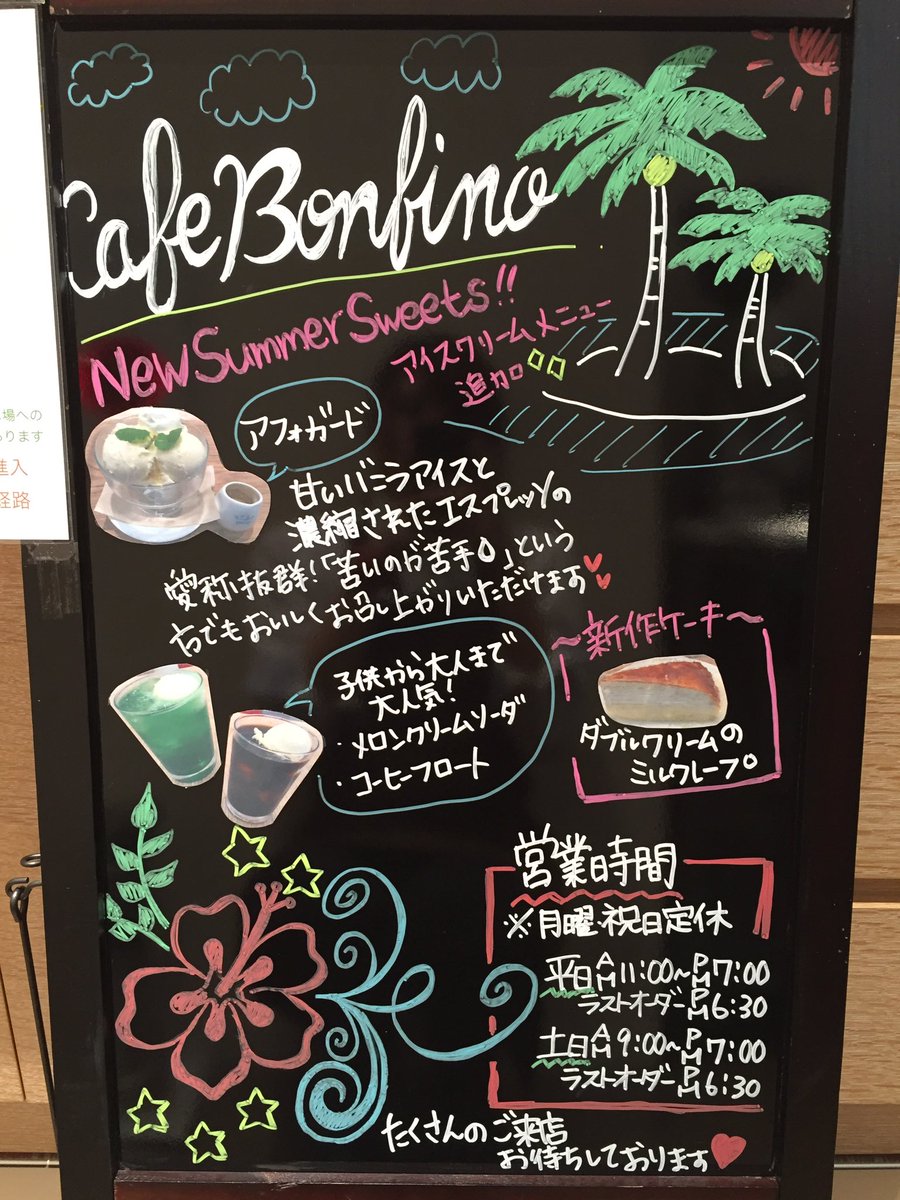 Cafe Bonfino
New Summer Sweets!!
アイスクリームメニュー
追加
アフォガード
甘いバニラアイスと
濃縮されたエスプレッソの
愛称抜群!「苦いのが苦手」という
方でもおいしくお召し上がりいただけます
子供から大人まで
大人気!
・メロンクリームソーダ
・コーヒーフロート
～新作ケーキ～
ダブルクリームの
ミルクレープ
営業時間
※月曜・祝日定休
平日 AM11:00~PM7:00
ラストオーダーPM6:30
土日 AM9:00~PM7:00
ラストオーダーPM6:30
たくさんのご来店
お待ちしております
場への
あります
進入
経路